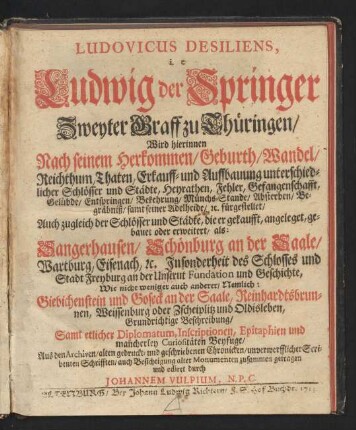 LUDOVICUS DESILIENS,
i. e.
Ludwig der Springer
Zweyter Graff zu Thüringen/
Wird hierinnen
Nach seinem Herkommen/ Geburth/ Wandel/
Reichthum, Thaten, Erkauff- und Aufbauung unterschied-
licher Schlösser und Städte, Heyrathen, Fehler, Gefangenschafft,
Gelübde/ Entspringen/ Bekehrung/ Münch-Stande/ Absterben/ Be-
gräbniß/ samt seiner Adelheide/ ꝛc. fürgestellet/
Auch zugleich der Schlösser und Städte, die er gekaufft, angeleget, ge-
bauet oder erweitert/ als:
Sangerhausen/ Schönburg an der Saale/
Wartburg/ Eisenach/ ꝛc. Insonderheit des Schlosses und
Stadt Freyburg an der Unstrut Fundation und Geschichte,
Wie nicht weniger auch anderer/ Nämlich:
Giebichenstein und Goseck an der Saale, Reinhardtsbrun-
nen, Weissenburg oder Zscheiplitz und Oldisleben,
Grundrichtige Beschreibung/
Samt etlicher Diplomatum, Inscriptionen, Epitaphien und
mancherley Curiositäten Beyfuge/
Aus den Archiven/ alten gedruck- und geschriebenen Chronicken/ unverwerfflicher Scri-
benten Schrifften/ auch Besichtigung alter Monumenten zusammen getragen
und ediret durch
JOHANNEM VULPIUM, N. P. C.
ALTENBURG/ Bey Johann Ludwig Richtern/ F. S. Hof Buchdr.